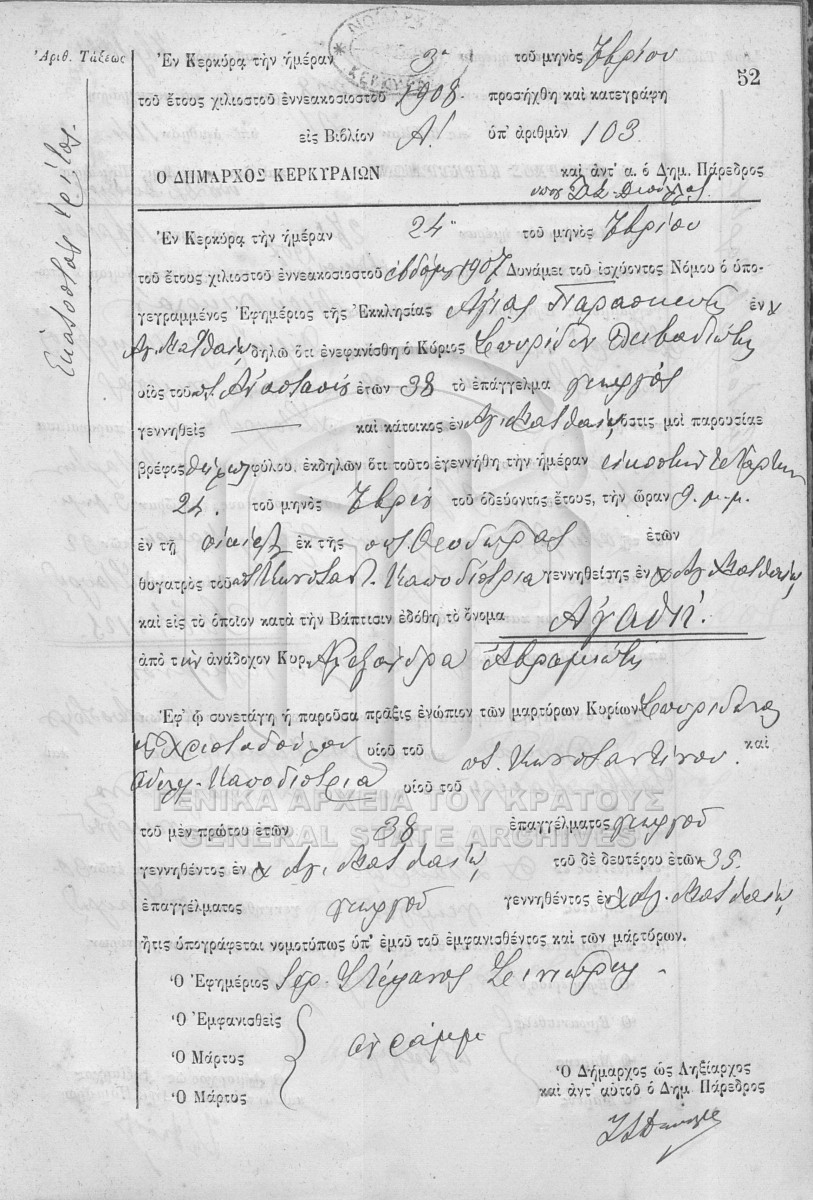 Ἀριθ. Τάξεως
Ἑκατοστός τρίτος.
52
ΚΕΡΚΥΡ
Ἐν Κερκύρᾳ τὴν ἡμέραν 3η τοῦ μηνὸς Ἰβρίου
τοῦ ἔτους χιλιοστοῦ ἐννεακοσιοστοῦ 1908. προσήχθη καὶ κατεγράφη
εἰς Βιβλίον Α! ὑπ' ἀριθμὸν 103
Ο ΔΗΜΑΡΧΟΣ ΚΕΡΚΥΡΑΙΩΝ καὶ ἀντ' α. ὁ Δημ. Πάρεδρος
Ἐν Κερκύρᾳ τὴν ἡμέραν 24 τοῦ μηνὸς Ἰβρίου
τοῦ ἔτους χιλιοστοῦ ἐννεακοσιοστοῦ 1907 Δυνάμει τοῦ ἰσχύοντος Νόμου ὁ ὑπο-
γεγραμμένος Ἐφημέριος τῆς Ἐκκλησίας Ἁγίας Παρασκευῆς ἐν χ
Ἁγ. Ματθαίῳ δηλῶ ὅτι ἐνεφανίσθη ὁ Κύριος Σπυρίδων Λιβαδιώτης
υἱὸς τοῦ π. Ἀναστασίου ἐτῶν 38 τὸ ἐπάγγελμα γεωργὸς
γεννηθεὶς — καὶ κάτοικος ἐν Ἁγ. Ματθαίῳ ὅστις μοὶ παρουσίασε
βρέφος θήλεος φύλου, ἐκδηλῶν ὅτι τοῦτο ἐγεννήθη τὴν ἡμέραν εἰκοστὴν τετάρτην
24. τοῦ μηνὸς Ἰβρίου τοῦ ὁδεύοντος ἔτους, τὴν ὥραν 9. μ.μ.
ἐν τῇ οἰκίᾳ ἐκ τῆς Θεοδώρας ἐτῶν
θυγατρὸς τοῦ π. Κωνσταντ. Καποδίστρια γεννηθείσης ἐν χ Ἁγ. Ματθαίῳ
καὶ εἰς τὸ ὁποῖον κατὰ τὴν Βάπτισιν ἐδόθη τὸ ὄνομα Ἀγαθή.
ἀπὸ τὴν ἀνάδοχον Κυρ. Ἀλεξάνδρα Ἀβραμιώτη
Ἐφ' ᾧ συνετάγη ἡ παροῦσα πρᾶξις ἐνώπιον τῶν μαρτύρων Κυρίων Σπυρίδωνος
Χριστοδούλου υἱοῦ τοῦ π. Κωνσταντίνου. καὶ
Καποδίστρια υἱοῦ τοῦ
ΓΕΝΙΚΑ ΑΡΧΕΙΑ ΤΟΥ ΚΡΑΤΟΥΣ
τοῦ μὲν πρώτου ἐτῶν 38 ἐπαγγέλματος γεωργοῦ
GENERAL STATE ARCHIVES
γεννηθέντος ἐν χ Ἁγ. Ματθαίῳ τοῦ δὲ δευτέρου ἐτῶν 35.
ἐπαγγέλματος γεωργοῦ γεννηθέντος ἐν χ Ἁγ. Ματθαίῳ
ἥτις ὑπογράφεται νομοτύπως ὑπ' ἐμοῦ τοῦ ἐμφανισθέντος καὶ τῶν μαρτύρων.
Ὁ Ἐφημέριος Ἱερ. Στέφανος
Ὁ Ἐμφανισθεὶς
Ὁ Μάρτυς ἀγράμμ.
Ὁ Μάρτυς
Ὁ Δήμαρχος ὡς Ληξίαρχος
καὶ ἀντ' αὐτοῦ ὁ Δημ. Πάρεδρος